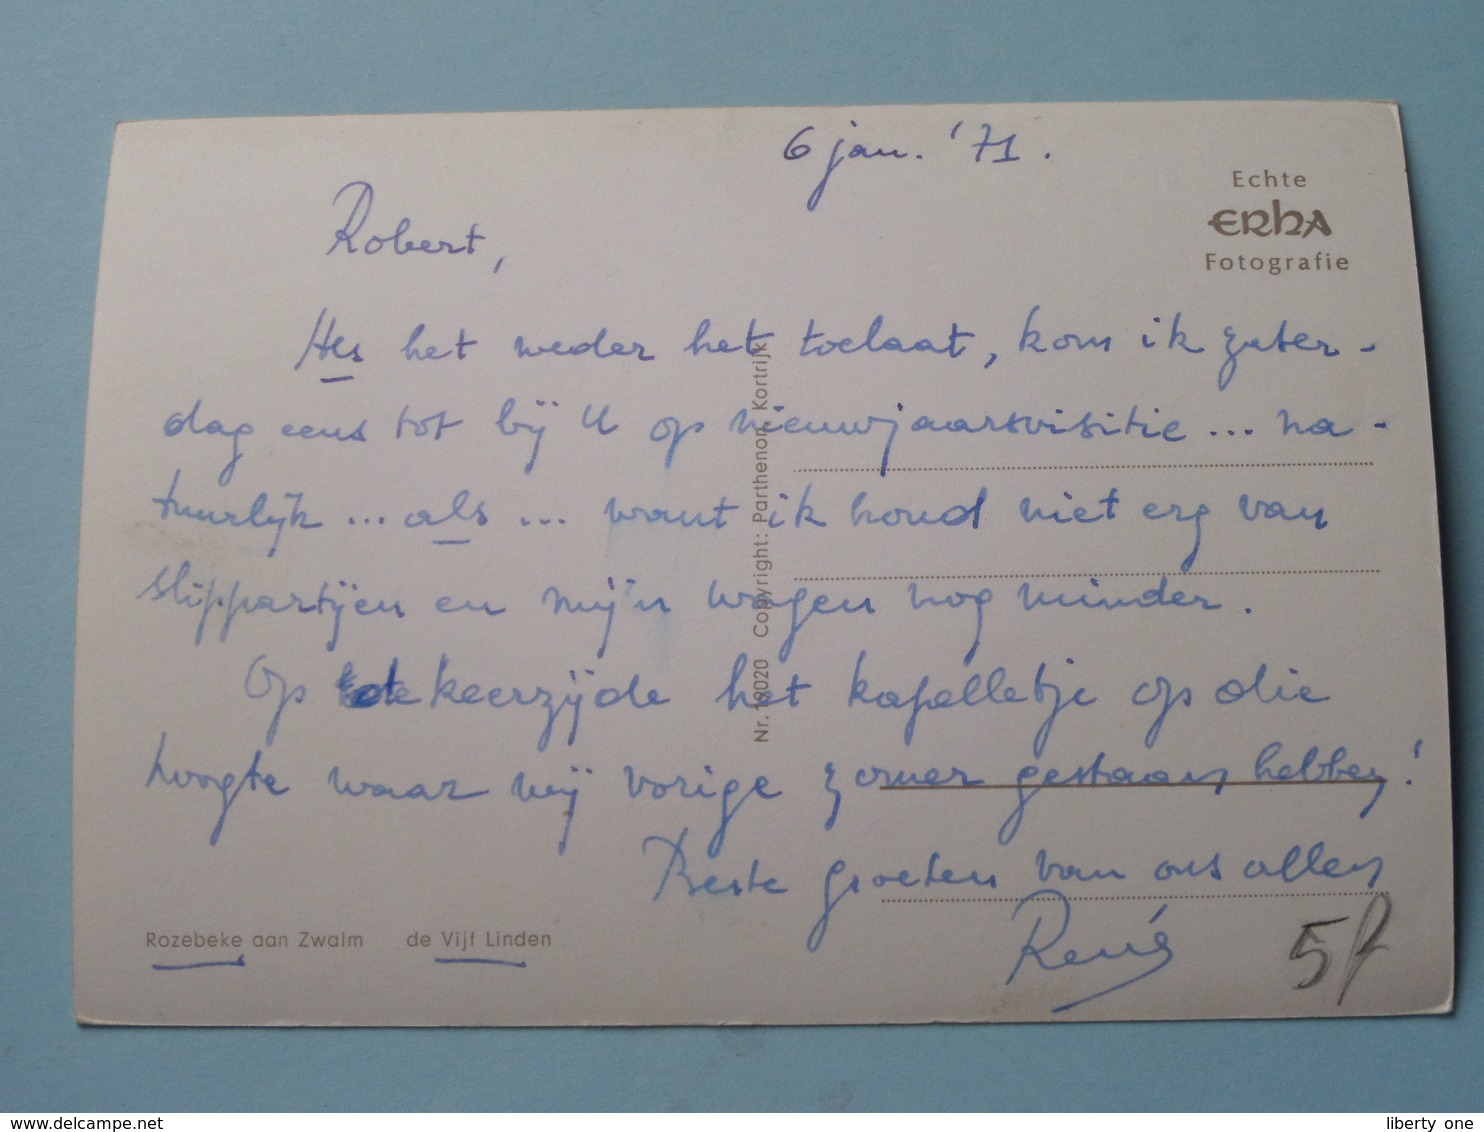 6 jan. '71.
Echte
ERHA
Fotografie
Robert,
Als het weder het toelaat, kom ik zater-
dag eens tot bij U op nieuwjaarsvisitie ... na-
tuurlijk ... als ... want ik houd niet erg van
slippartijen en mijn wagen nog minder.
Op de keerzijde het kapelletje op die
hoogte waar wij vorige zomer gestaan hebben!
Beste groeten van ons allen
René
Nr. 18020 Copyright: Parthenon, Kortrijk
Rozebeke aan Zwalm de Vijf Linden
delcampe.net
liberty one